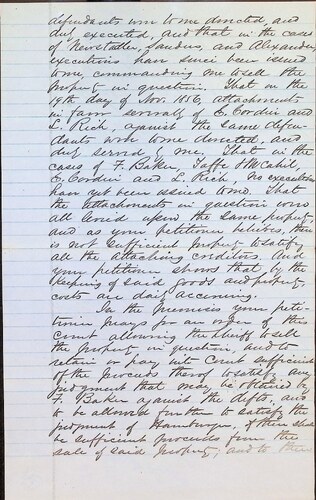 defendants were to me directed, and
duly executed, and that in the cases
of Newstatter, Sanders, and Alexander,
executions have since been issued
to me, commanding me to sell the
property in question. That on the
19th day of Nov. 1856, attachments
in favor severally of E. Cordier and
L. Rich, against the same defen-
dants were to me directed, and
duly served by me. That in the
cases of F. Baker, Taffe & McCahill,
E. Cordier and L. Rich, no executions
have yet been issued to me. That
the attachments in question were
all levied upon the same property,
and as your petitioner believes, there
is not sufficient property to satisfy
all the attaching creditors. And
your petitioner shows that by the
keeping of said goods and property
costs are daily accruing.
In the premises your peti-
tioner prays for an order of this
Court allowing the Sheriff to sell
the property in question, and to
retain or pay into Court sufficient
of the proceeds thereof to satisfy any
judgment that may be obtained by
F. Baker against the defts, and
to be allowed further to satisfy the
judgment of Hamburger, if there shall
be sufficient proceeds from the
sale of said property; and to